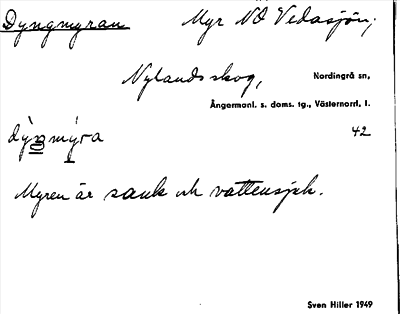 Dyngmyran Myr NO Vedasjön,
Nylandsskog, Nordingrå sn,
Ångermanl. s. doms. tg., Västernorrl. l.
dỳŋmy̆ra 42
Myren är sank och vattensjuk.
Sven Hiller 1949